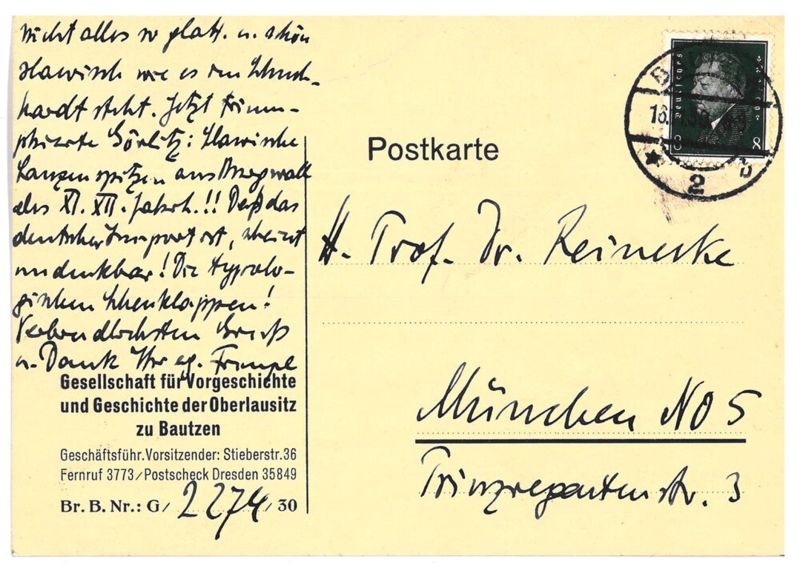 nicht alles so glatt u. schön
slawisch wie es von Schuch-
hardt steht. Jetzt trium-
phierte Görlitz: slawische
Lanzenspitzen aus Burgwall
des XI. XII. Jahrh.!! Daß das
deutscher Import ist, scheint
undenkbar! Die typolo-
gischen Scheuklappen!
Verbindlichsten Gruß
u. Dank Ihr erg. Frenzel
Gesellschaft für Vorgeschichte
und Geschichte der Oberlausitz
zu Bautzen
Geschäftsführ. Vorsitzender: Stieberstr. 36
Fernruf 3773/Postscheck Dresden 35849
Br. B. Nr.: G/ 2274 /30
Postkarte
Deutsches Reich
8 8
2 b
H. Prof. Dr. Reinecke
München NO 5
Prinzregentenstr. 3